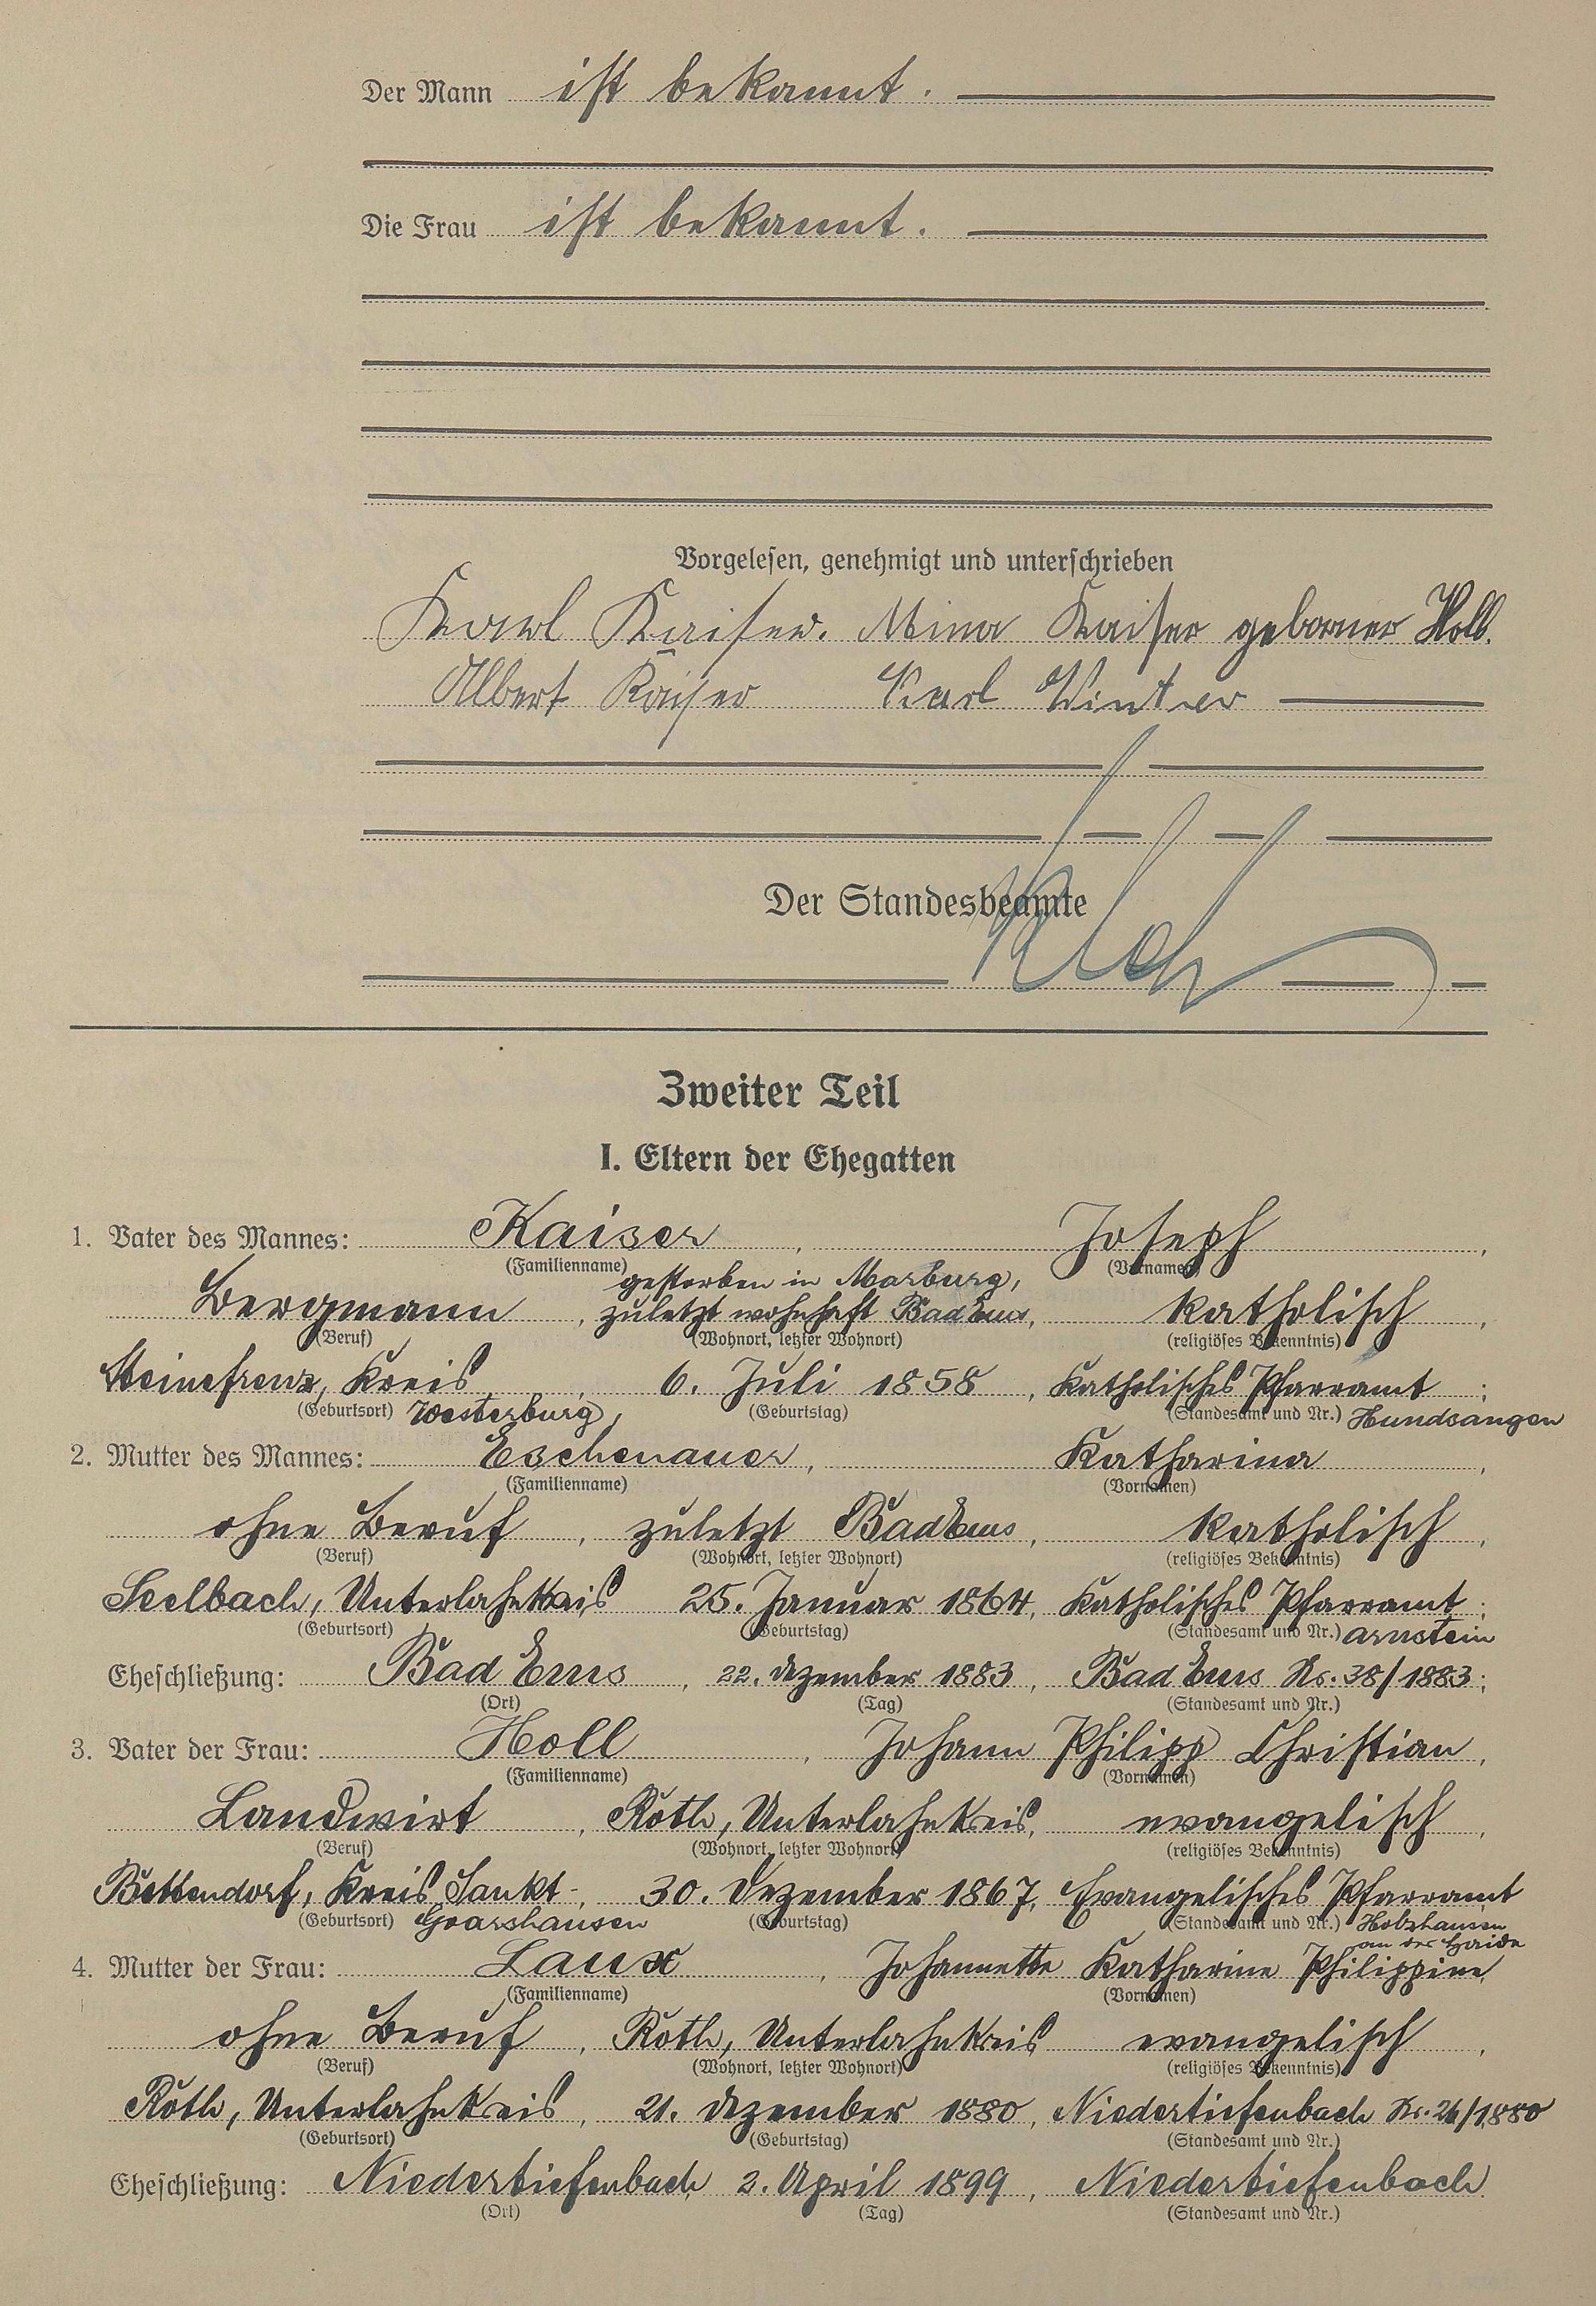 Der Mann ist bekannt.
Die Frau ist bekannt.
Vorgelesen, genehmigt und unterschrieben
Karl Kaiser. Mina Kaiser geborner Holl.
Albert Kaiser Karl Winter
Der Standesbeamte
Zweiter Teil
I. Eltern der Ehegatten
1. Vater des Mannes: Kaiser, Joseph,
(Familienname) (Vornamen)
gestorben in Marburg,
Bergmann, zuletzt wohnhaft Bad Ems, katholisch,
(Beruf) (Wohnort, letzter Wohnort) (religiöses Bekenntnis)
Steinefrenz, Kreis, 6. Juli 1858, Katholisches Pfarramt;
(Geburtsort) Westerburg, (Geburtstag) (Standesamt und Nr.) Hundsangen
2. Mutter des Mannes: Eschenauer, Katharina,
(Familienname) (Vornamen)
ohne Beruf, zuletzt Bad Ems, katholisch,
(Beruf) (Wohnort, letzter Wohnort) (religiöses Bekenntnis)
Seelbach, Unterlahnkreis 25. Januar 1864, Katholisches Pfarramt;
(Geburtsort) (Geburtstag) (Standesamt und Nr.) Arnstein
Eheschließung: Bad Ems, 22. Dezember 1883, Bad Ems Nr. 38/1883;
(Ort) (Tag) (Standesamt und Nr.)
3. Vater der Frau: Holl, Johann Philipp Christian,
(Familienname) (Vornamen)
Landwirt, Roth, Unterlahnkreis, evangelisch,
(Beruf) (Wohnort, letzter Wohnort) (religiöses Bekenntnis)
Bettendorf, Kreis Sankt-, 30. Dezember 1867, Evangelisches Pfarramt
(Geburtsort) Goarshausen (Geburtstag) (Standesamt und Nr.) Holzhausen
an der Haide
4. Mutter der Frau: Laux, Johannette Katharine Philippine,
(Familienname) (Vornamen)
ohne Beruf, Roth, Unterlahnkreis evangelisch,
(Beruf) (Wohnort, letzter Wohnort) (religiöses Bekenntnis)
Roth, Unterlahnkreis, 21. Dezember 1880, Niedertiefenbach Nr. 26/1880
(Geburtsort) (Geburtstag) (Standesamt und Nr.)
Eheschließung: Niedertiefenbach 2. April 1899, Niedertiefenbach
(Ort) (Tag) (Standesamt und Nr.)